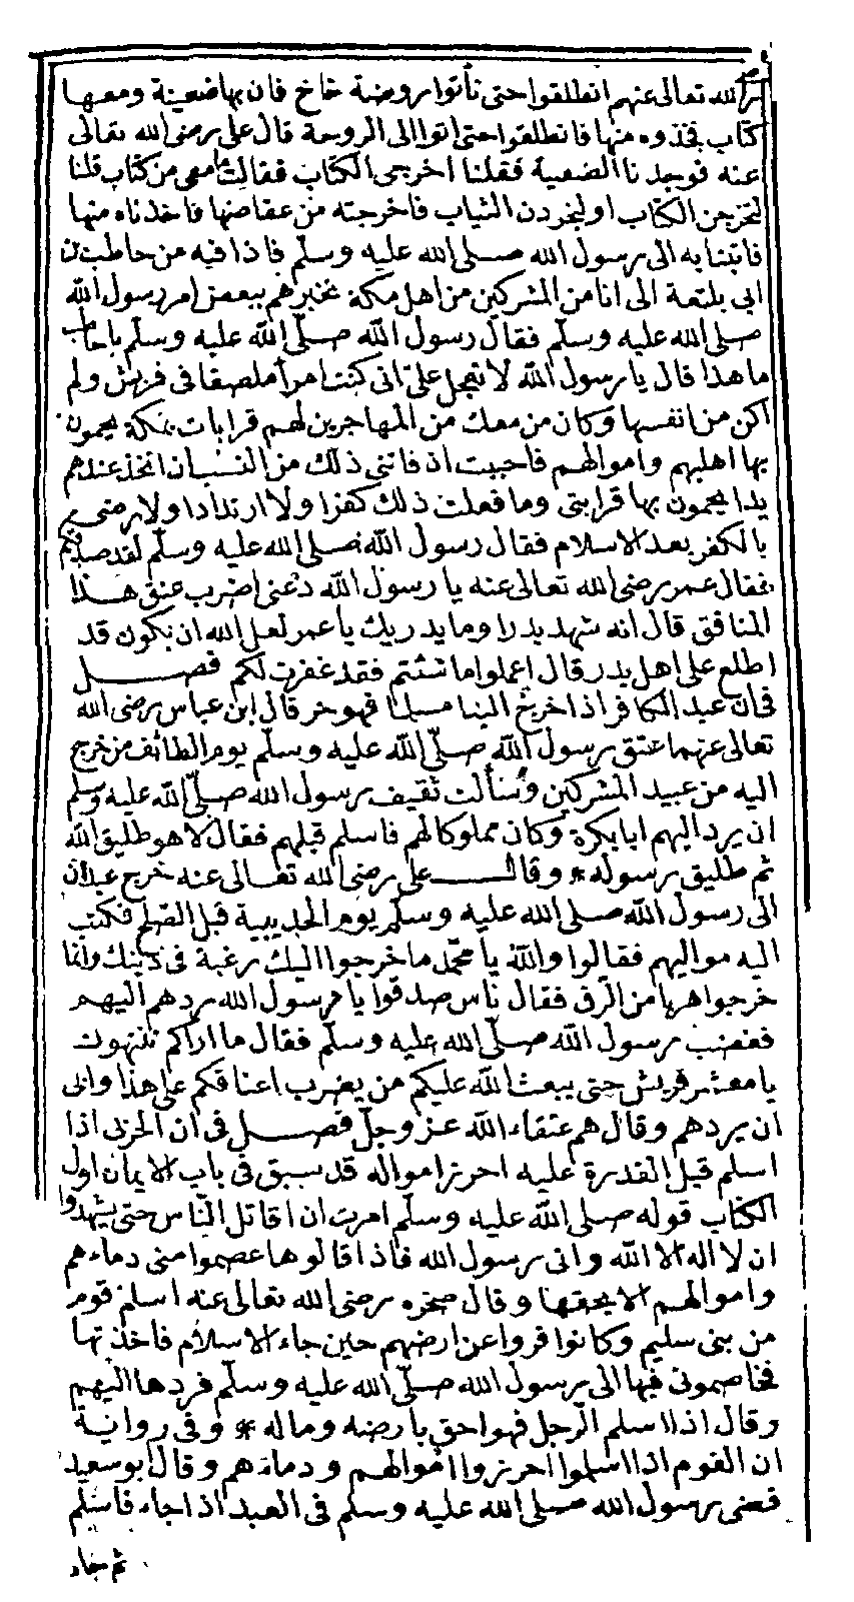 رضي الله تعالى عنهم انطلقوا حتى تأتوا روضة خاخ فان بها ضعينة ومعها
كتاب فخذوه منها فانطلقوا حتى اتوا الى الروحة قال على رضى الله تعالى
عنه فوجدنا الضعينة فقلنا اخرجى الكتاب فقالت ما معى من كتاب قلنا
لتخرجن الكتاب او لنجردن الثياب فاخرجته من عقاصها فاخذناه منها
فاتينا به الى رسول الله صلى الله عليه وسلم فاذا فيه من حاطب بن
ابى بلتعة الى اناس من المشركين من اهل مكة يخبرهم ببعض امر رسول الله
صلى الله عليه وسلم فقال رسول الله صلّى الله عليه وسلّم يا حاطب
ما هذا قال يا رسول الله لا تعجل علىّ انى كنت امرأ ملصقا فى قريش ولم
اكن من انفسها وكان من معك من المهاجرين لهم قرابات بمكة يحمون
بها اهليهم واموالهم فاحببت اذ فاتنى ذلك من النسب ان اتخذ عندهم
يدا يحمون بها قرابتى وما فعلت ذلك كفرا ولا ارتدادا ولا رضى
بالكفر بعد الاسلام فقال رسول الله صلى الله عليه وسلّم لقد صدقكم
فقال عمر رضى الله تعالى عنه يا رسول الله دعنى اضرب عنق هذا
المنافق قال انه شهد بدرا وما يدريك يا عمر لعل الله ان يكون قد
اطلع على اهل بدر قال اعملوا ما شئتم فقد غفرت لكم فصل
فى ان عبد الكافر اذا خرج الينا مسلما فهو حر قال ابن عباس رضى الله
تعالى عنهما عتق رسول الله صلّى الله عليه وسلّم يوم الطائف من خرج
اليه من عبيد المشركين وسألت ثقيف رسول الله صلّى الله عليه وسلم
ان يرد اليهم ابا بكرة وكان مملوكا لهم فاسلم قبلهم فقال لا هو طليق الله
ثم طليق رسوله * وقال على رضى الله تعالى عنه خرج عبدان
الى رسول الله صلى الله عليه وسلّم يوم الحديبية قبل الصّلح فكتب
اليه مواليهم فقالوا والله يا محمّد ما خرجوا اليك رغبة فى دينك وانما
خرجوا هربا من الرق فقال ناس صدقوا يا رسول الله ردهم اليهم
فغضب رسول الله صلّى الله عليه وسلّم فقال ما اراكم تنتهون
يا معشر قريش حتى يبعث الله عليكم من يضرب اعناقكم على هذا وابى
ان يردهم وقال هم عتقاء الله عز وجلّ فصل فى ان الحربى اذا
اسلم قبل القدرة عليه احرز امواله قد سبق فى باب الايمان اول
الكتاب قوله صلى الله عليه وسلّم امرت ان اقاتل النّاس حتى يشهدوا
ان لا اله الا الله وانى رسول الله فاذا قالوها عصموا منى دماءهم
واموالهم الا بحقها وقال صخره رضى الله تعالى عنه اسلم قوم
من بنى سليم وكانوا فروا عن ارضهم حين جاء الاسلام فاخذتها
فخاصمونى فيها الى رسول الله صلّى الله عليه وسلّم فردها اليهم
وقال اذا اسلم الرجل فهو احق بارضه وماله * وفى رواية
ان القوم اذا اسلموا احرزوا اموالهم ودماءهم وقال ابو سعيد
قضى رسول الله صلى الله عليه وسلم فى العبد اذا جاء فاسلم
ثم جاء